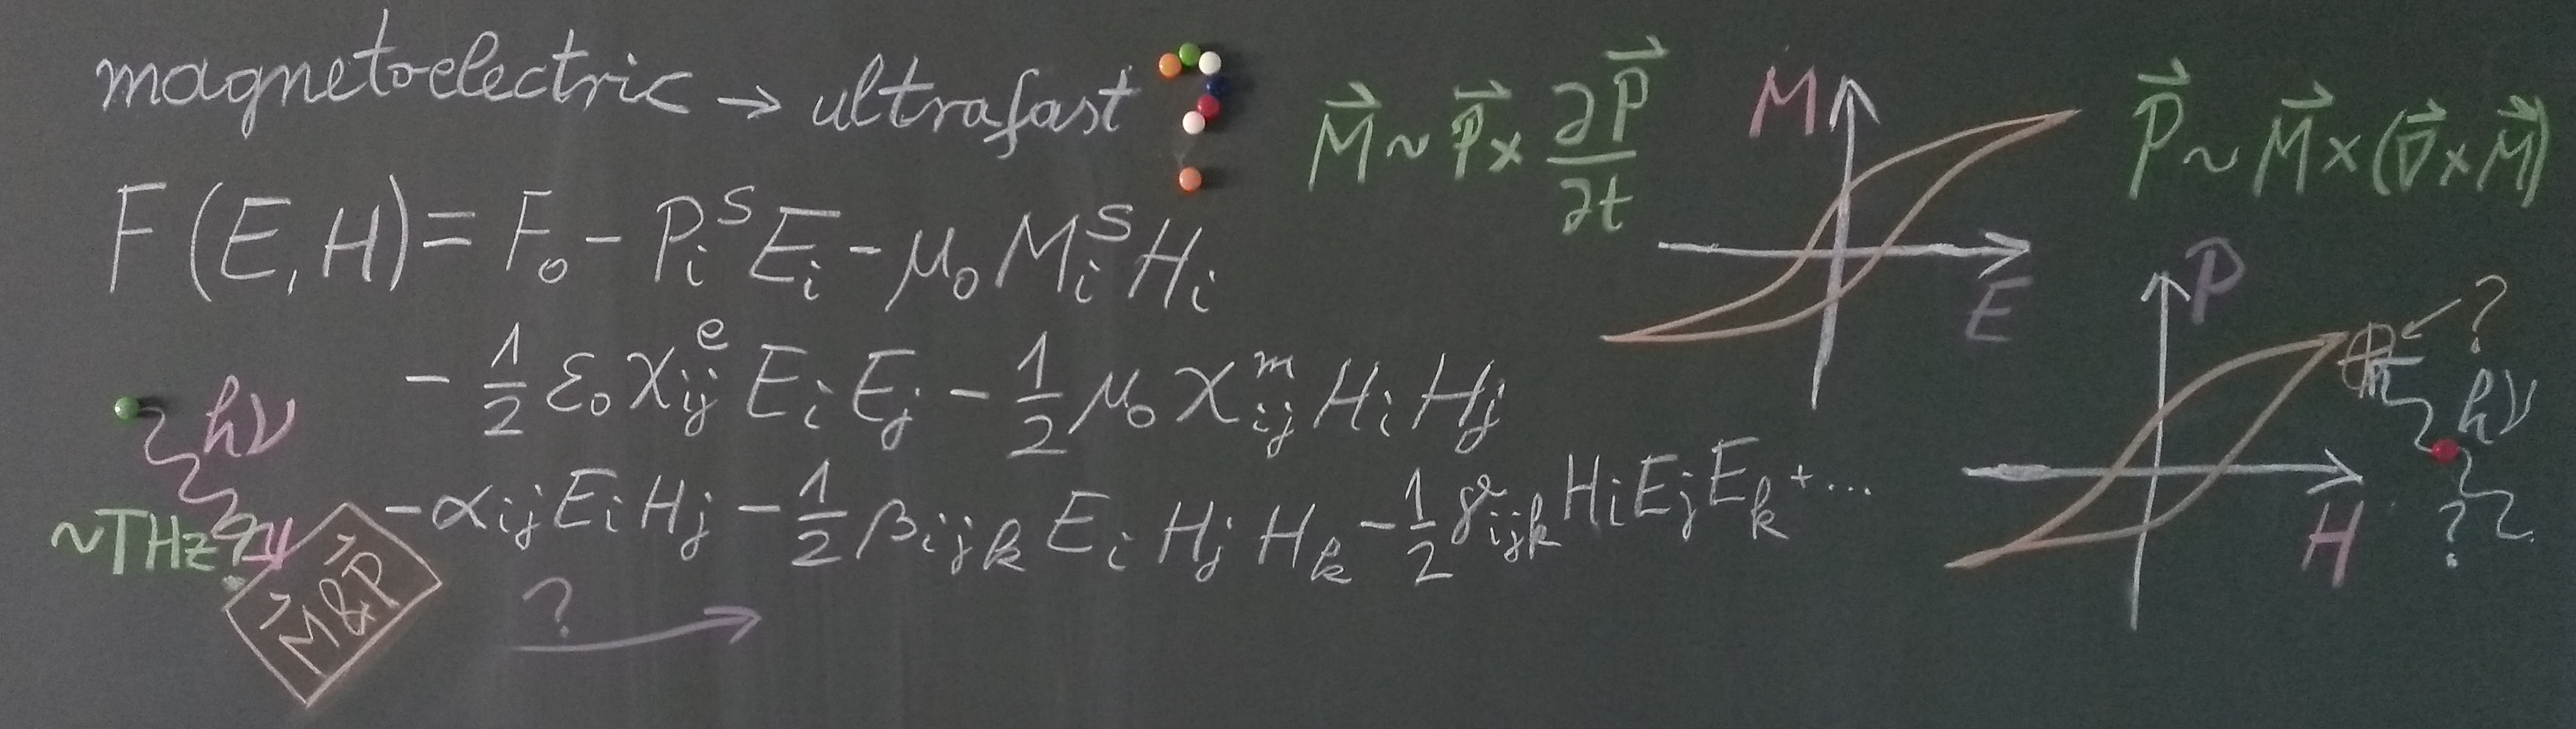 magnetoelectric → ultrafast ?
F(E,H) = F₀ - PᵢˢEᵢ - μ₀MᵢˢHᵢ
- 1/2 ε₀χᵢⱼᵉEᵢEⱼ - 1/2 μ₀χᵢⱼᵐHᵢHⱼ
- αᵢⱼEᵢHⱼ - 1/2 βᵢⱼₖEᵢHⱼHₖ - 1/2 γᵢⱼₖHᵢEⱼEₖ + ...
hν
~THz
M⃗&P⃗
?
M⃗ ~ P⃗ × ∂P⃗/∂t
M
E
P⃗ ~ M⃗ × (∇⃗ × M⃗)
P
H
?
hν
?